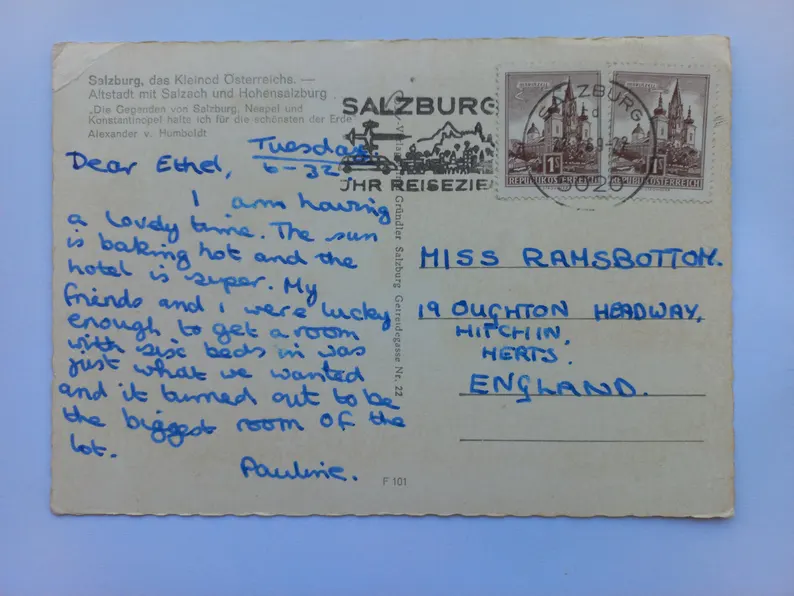 Salzburg, das Kleinod Österreichs. —
Altstadt mit Salzach und Hohensalzburg
„Die Gegenden von Salzburg, Neapel und
Konstantinopel halte ich für die schönsten der Erde
Alexander v. Humboldt
SALZBURG
IHR REISEZIE
SALZBURG
d
5020
MARIAZELL
1S
REPUBLIK ÖSTERREICH
1S
REPUBLIK ÖSTERREICH
Verlag
Gründler Salzburg Getreidegasse Nr. 22
Tuesday.
6-32
Dear Ethel,
I am having
a lovely time. The sun
is baking hot and the
hotel is super. My
friends and i were lucky
enough to get a room
with six beds in was
just what we wanted
and it turned out to be
the biggest room of the
lot.
Pauline.
MISS RAMSBOTTOM.
19 OUGHTON HEADWAY,
HITCHIN,
HERTS.
ENGLAND.
F 101